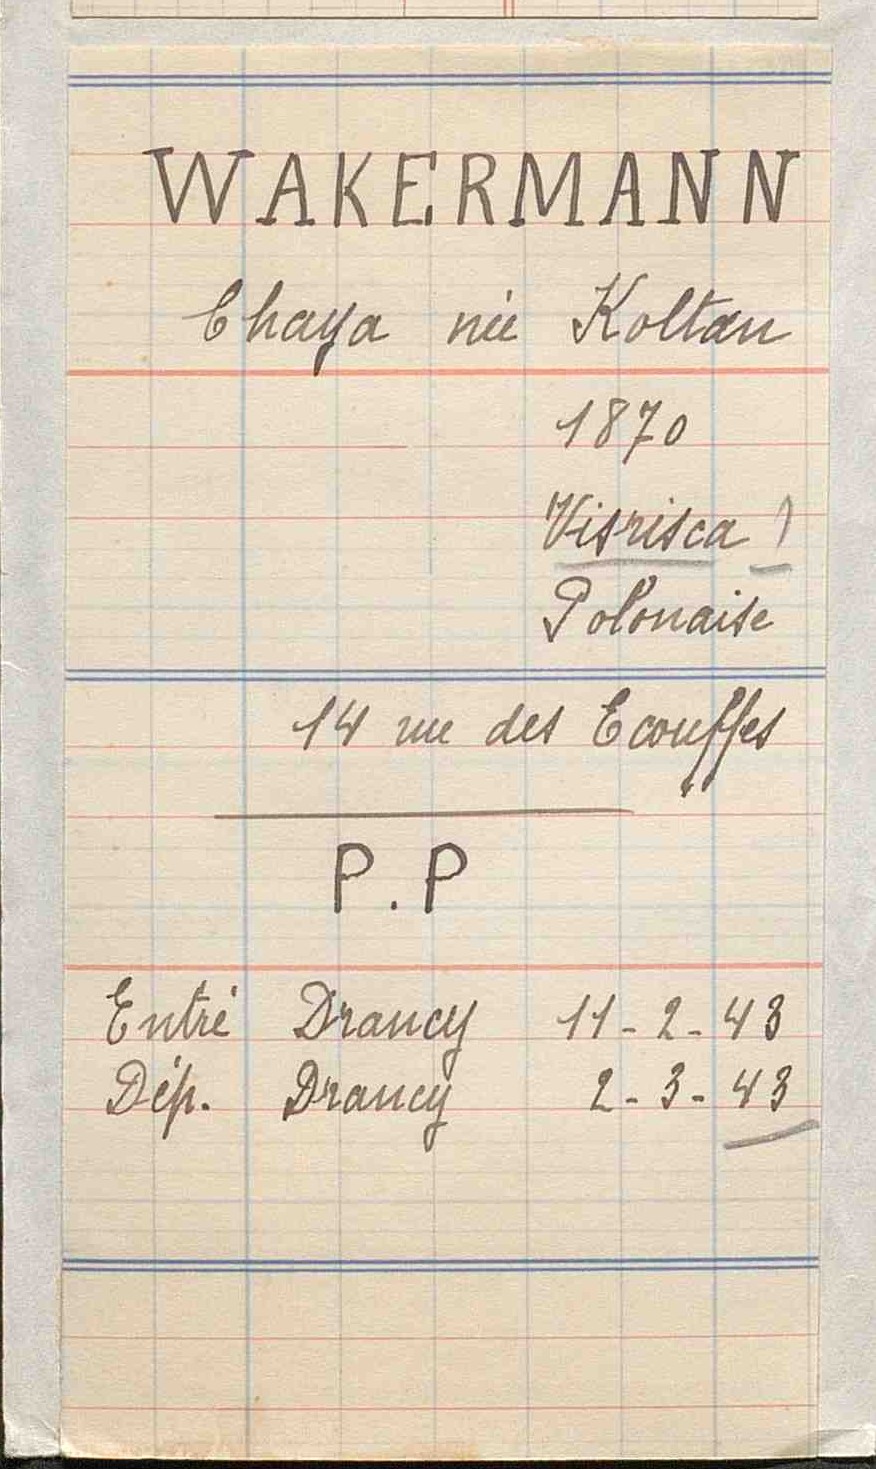 WAKERMANN
Chaya née Koltan
1870
Visrisca )
Polonaise
14 rue des Ecouffes
P.P
Entré Drancy 11-2-43
Dép. Drancy 2-3-43